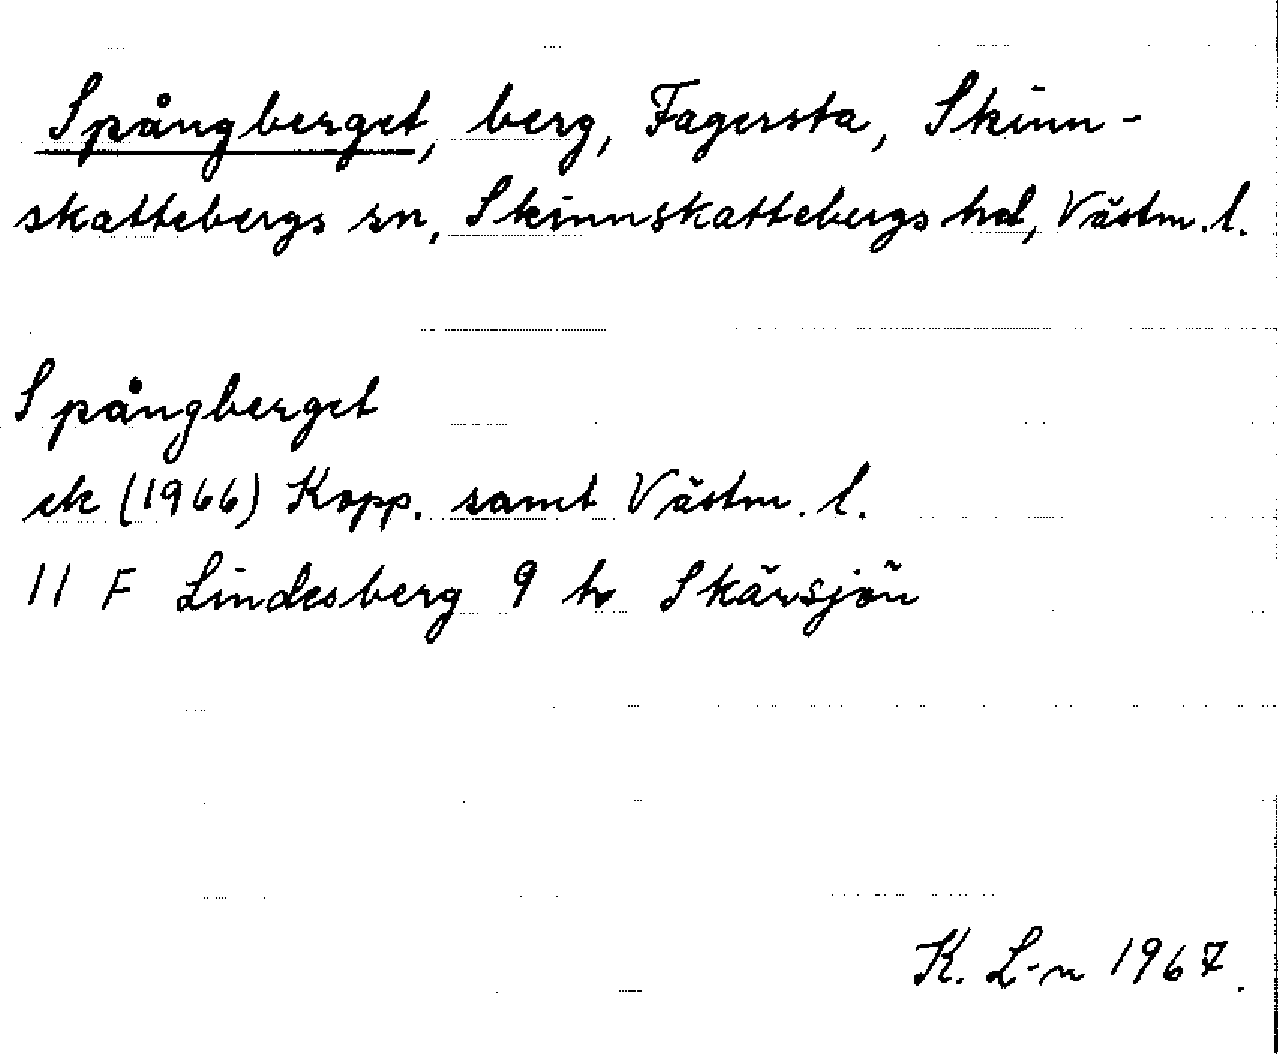 Spångberget, berg, Fagersta, Skinn-
skattebergs sn, Skinnskattebergs hd, Västm. l.
Spångberget
ek (1966) Kopp. samt Västm. l.
11 F Lindesberg 9 h Skärsjön
K. L-n 1967.